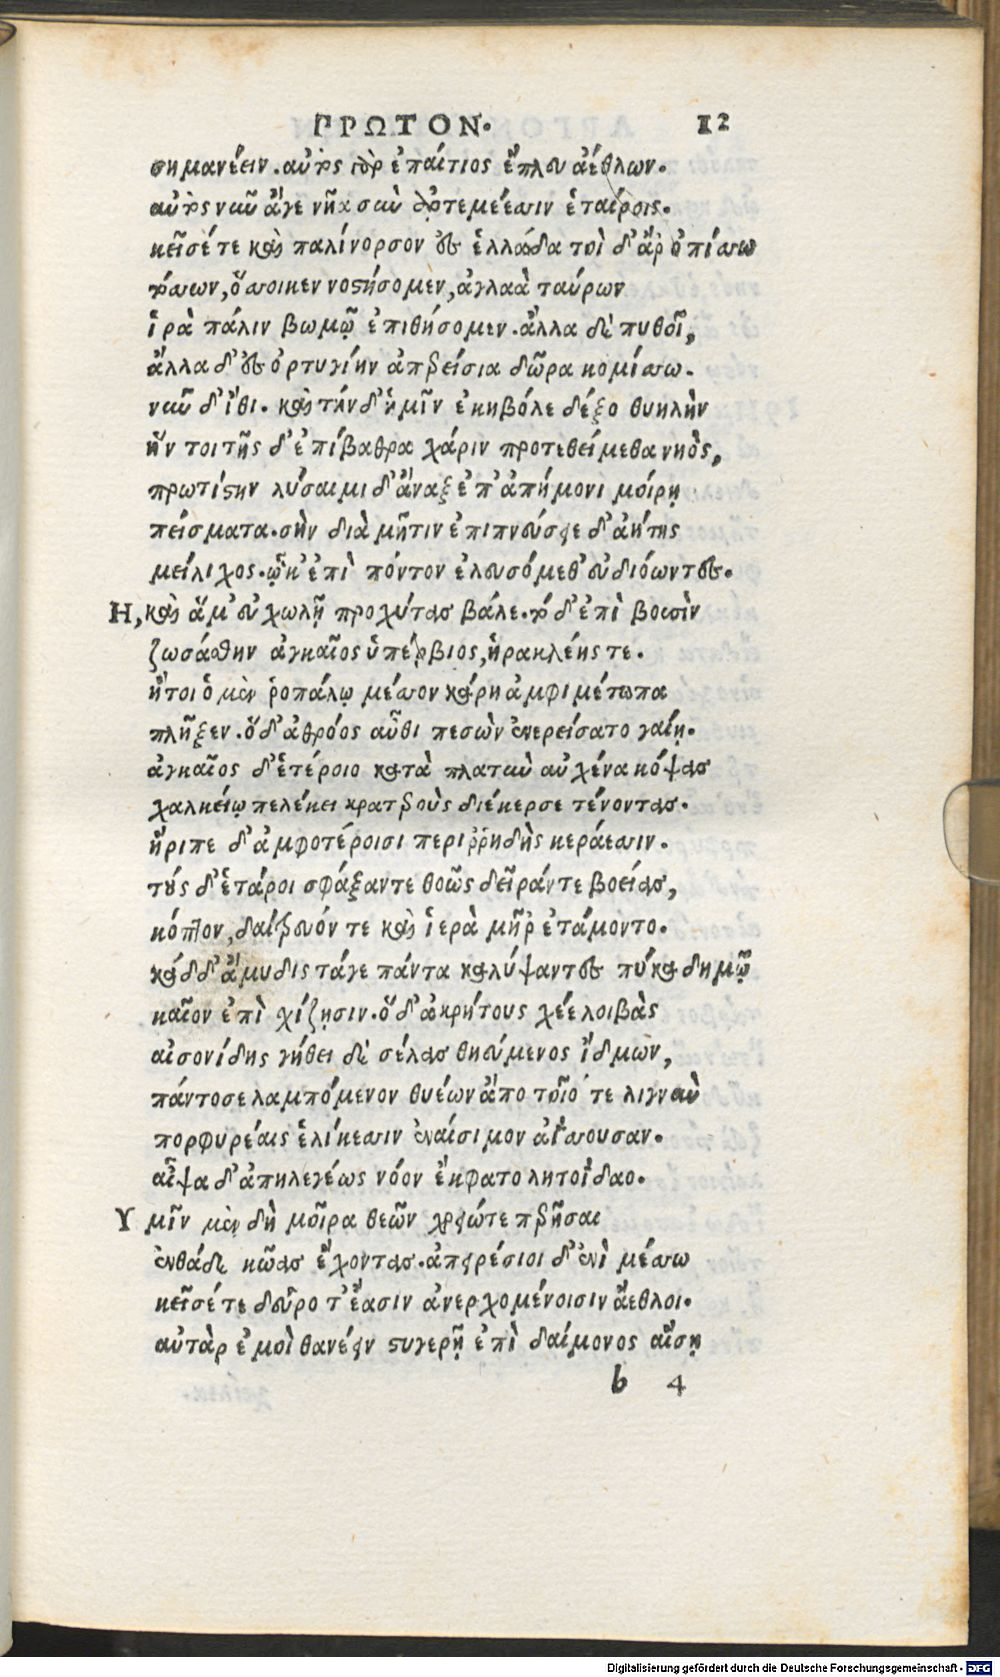 ΠΡΩΤΟΝ. 12
σημανέειν. αὐτὸς γὰρ ἐπαίτιος ἔπλευ ἀέθλων.
αὐτὸς νῦν ἄγε νῆα σὺν ἀρτεμέεσσιν ἑταίροις.
κεῖσέ τε καὶ παλίνορσον ἐς ἑλλάδα τοὶ δ' ἂρ ὀπίσσω
τόσσων, ὅσσοι κεν νοστήσομεν, ἀγλαὰ ταύρων
ἱρὰ πάλιν βωμῷ ἐπιθήσομεν. ἄλλα δὲ πυθοῖ,
ἄλλα δ' ἐς ὀρτυγίην ἀπερείσια δῶρα κομίσσω.
νῦν δ' ἴθι. καὶ τήν δ' ἡμῖν ἑκηβόλε δέξο θυηλὴν
ἥν τοι τῆς δ' ἐπίβαθρα χάριν προτεθείμεθα νηὸς,
πρωτίστην λύσαιμι δ' ἄναξ ἐπ' ἀπήμονι μοίρῃ
πείσματα. σὴν διὰ μῆτιν ἐπιπνεύσειε δ' ἀήτης
μείλιχος. ᾧ κ' ἐπὶ πόντον ἐλευσόμεθ' εὐδιόωντες.
Η, καὶ ἅμ' εὐχωλῇ προχύτας βάλε. τὼ δ' ἐπὶ βουσὶν
ζωσάσθην ἀγκαῖος ὑπέρβιος, ἡρακλέης τε.
ἤτοι ὁ μὲν ῥοπάλῳ μέσσον κάρη ἀμφὶ μέτωπα
πλῆξεν. ὁ δ' ἀθρόος αὖθι πεσὼν ἐνερείσατο γαίῃ.
ἀγκαῖος δ' ἑτέροιο κατὰ πλατὺν αὐχένα κόψας
χαλκείῳ πελέκει κρατεροὺς διέκερσε τένοντας.
ἤριπε δ' ἀμφοτέροισι περιῤῥηδὴς κεράεσσιν.
τοὺς δ' ἕταροι σφάξαντε θοῶς δεῖράν τε βοείας,
κόπτον, δαίτρευόν τε καὶ ἱερὰ μῆρ' ἐτάμοντο.
κὰδ δ' ἄμυδις τάγε πάντα καλύψαντες πύκα δημῷ
καῖον ἐπὶ χίζῃσιν. ὁ δ' ἀκρήτους χέε λοιβὰς
αἰσονίδης γήθει δὲ σέλας θηεύμενος ἴδμων,
πάντοσε λαμπόμενον θυέων ἄπο τοῖό τε λιγνὺν
πορφυρέαις ἑλίκεσσιν ἐναίσιμον ἀΐσσουσαν.
αἶψα δ' ἀπηλεγέως νόον ἔκφατο λητοΐδαο.
Υμῖν μὲν δὴ μοῖρα θεῶν χρειώ τε περῆσαι
ἐνθάδε κῶας ἔχοντας. ἀπειρέσιοι δ' ἐνὶ μέσσω
κεῖσέ τε δεῦρο τ' ἔασιν ἀνερχομένοισιν ἄεθλοι.
αὐτὰρ ἐμοὶ θανέειν στυγερῇ ἐπὶ δαίμονος αἴσῃ
b 4
Digitalisierung gefördert durch die Deutsche Forschungsgemeinschaft - DFG